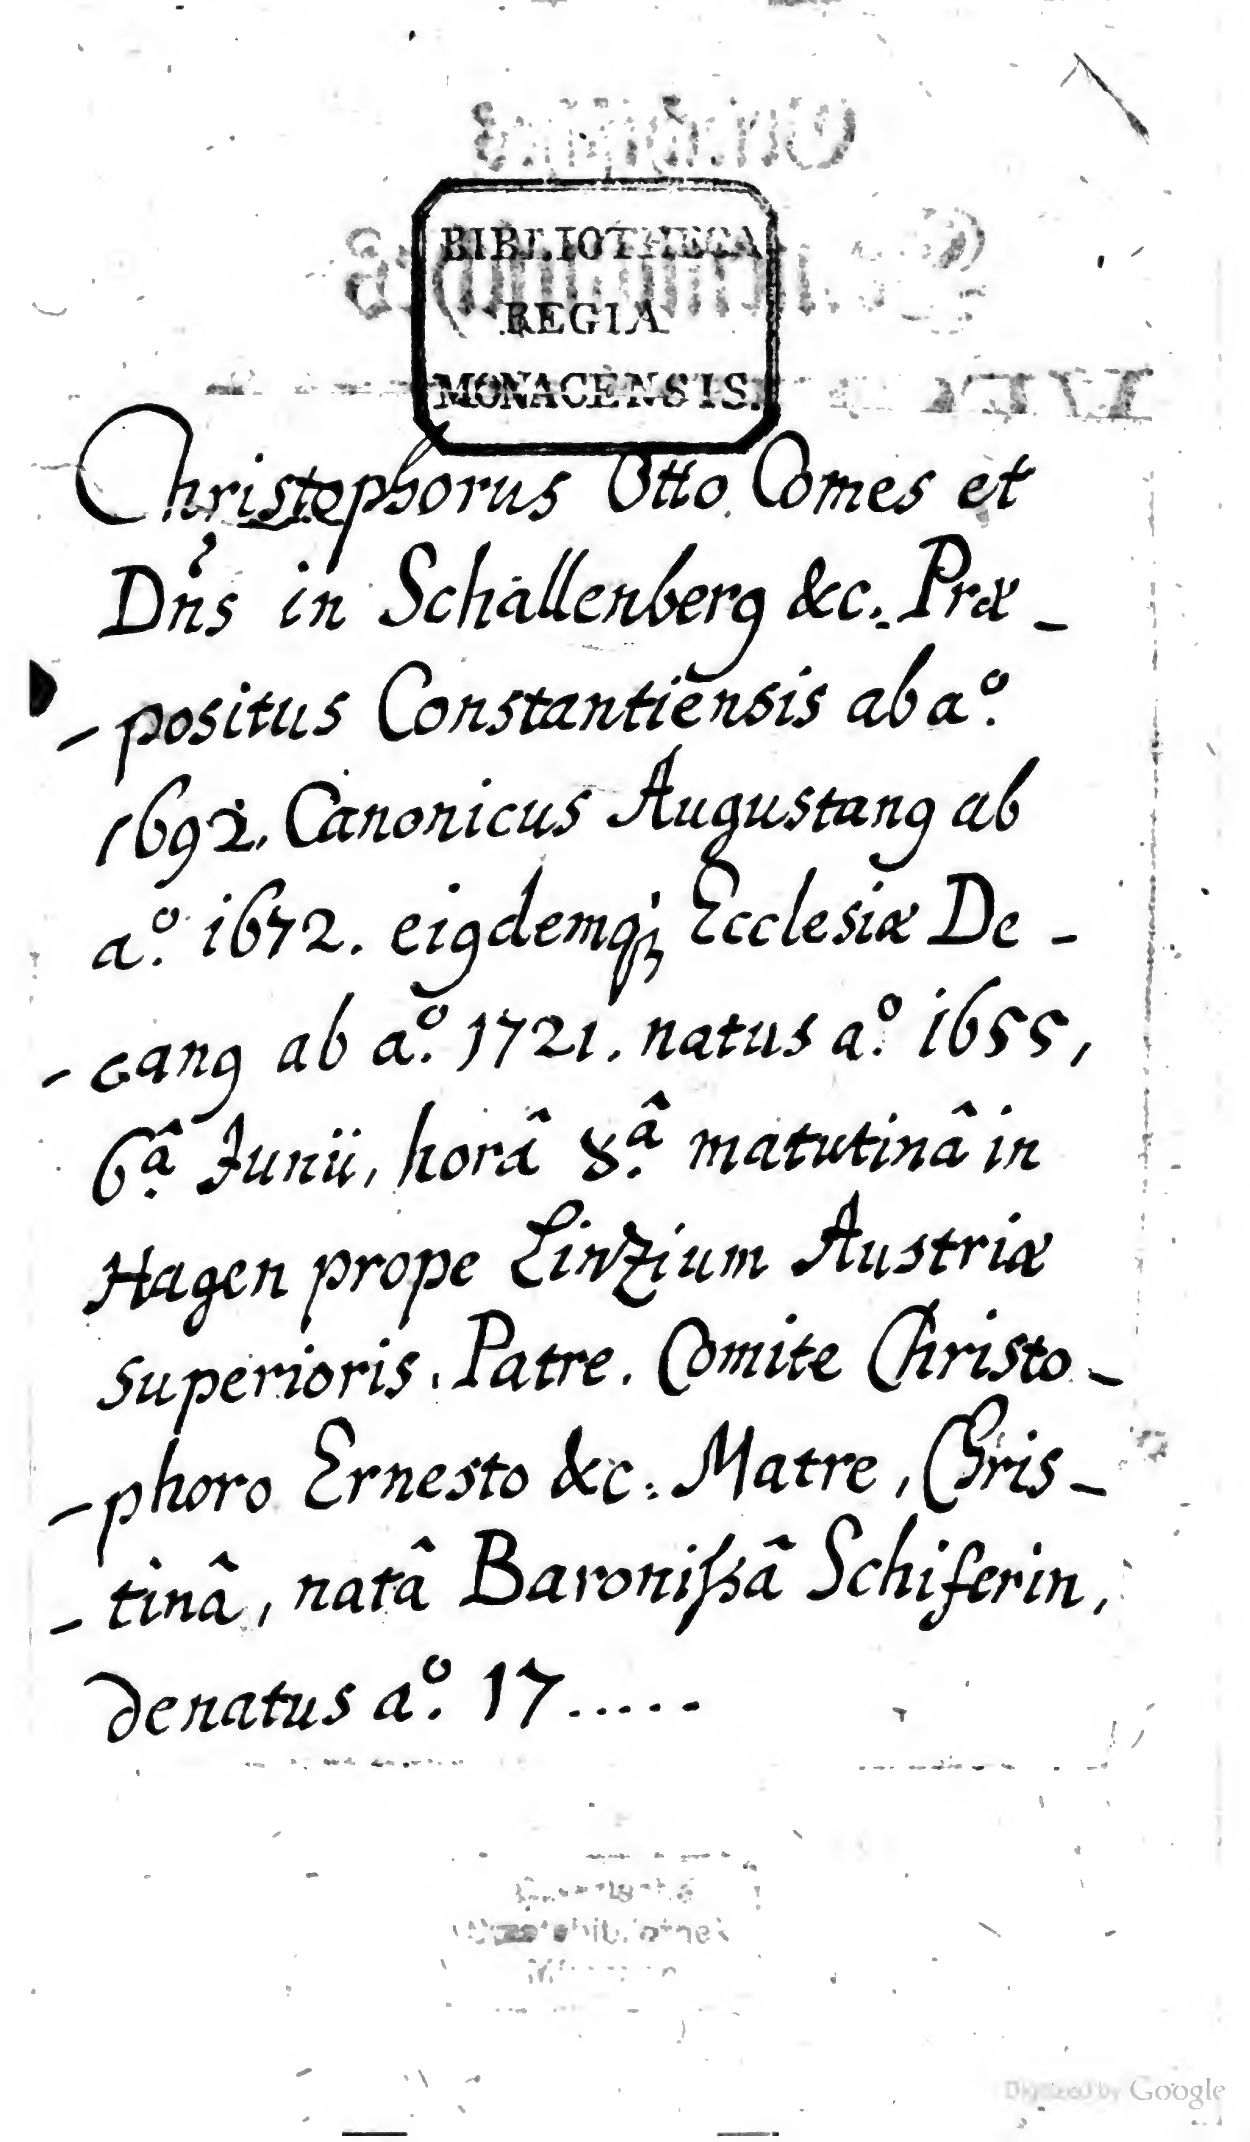 BIBLIOTHECA
REGIA
MONACENSIS.
Christophorus Otto Comes et
Dn̄s in Schallenberg &c. Præ-
-positus Constantiensis ab aº.
1692. Canonicus Augustanꝰ ab
aº. 1672. eiꝰdemq; Ecclesiæ De-
-canꝰ ab aº. 1721. natus aº. 1655,
6.â Junii, horâ 8.â matutinâ in
Hagen prope Linzium Austriæ
superioris. Patre. Comite Christo-
-phoro Ernesto &c. Matre, Chris-
-tinâ, natâ Baronissâ Schiferin,
denatus aº. 17.....
Digitized by Google